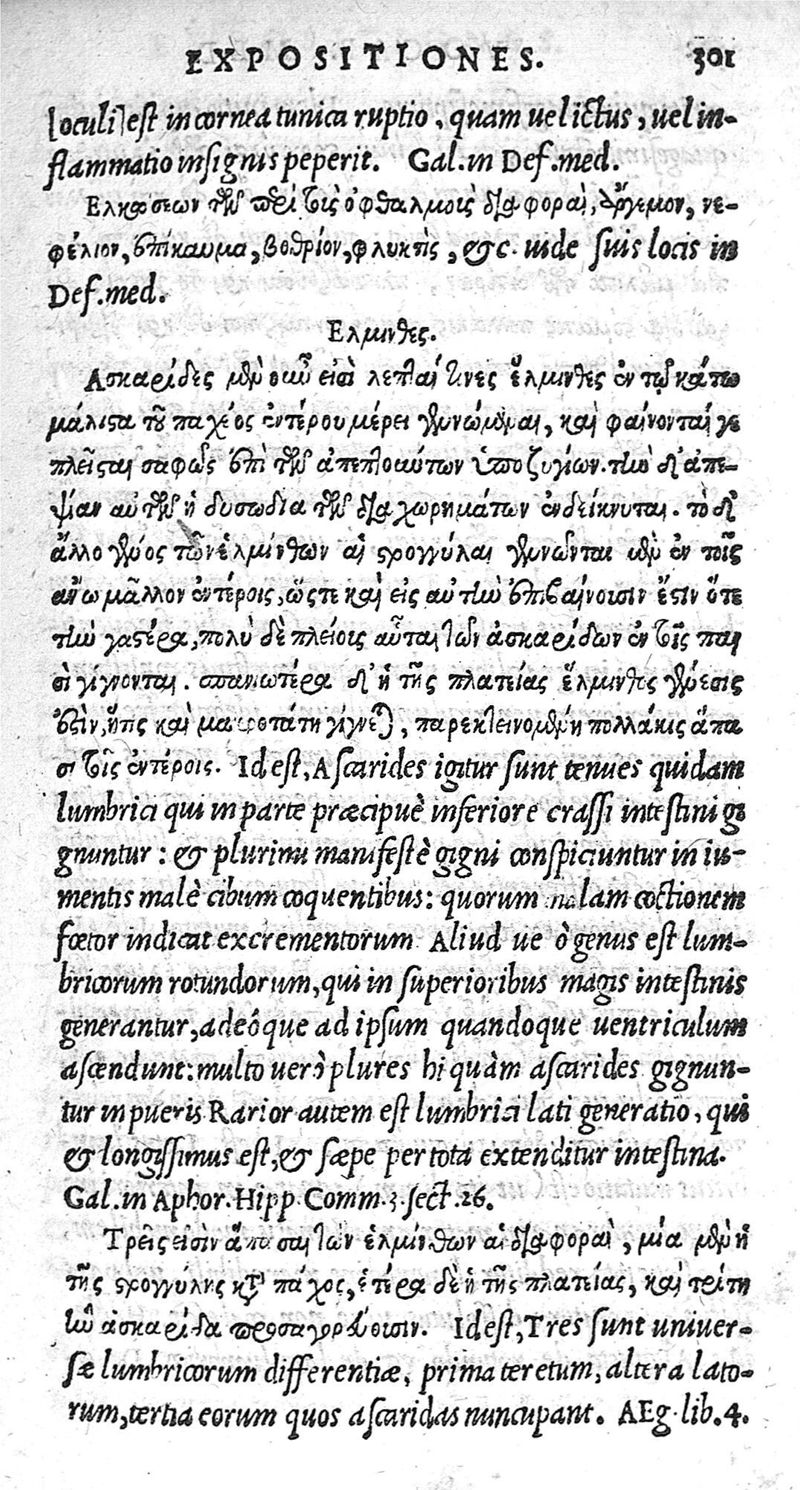 EXPOSITIONES. 301
[oculi] est in cornea tunica ruptio, quam uel ictus, uel in-
flammatio insignis peperit. Gal. in Def. med.
Ελκώσεων τῶν περὶ τοῖς ὀφθαλμοῖς διαφοραὶ, ἄργεμον, νε-
φέλιον, ἐπίκαυμα, βοθρίον, φλυκτὶς, &c. uide suis locis in
Def. med.
Ελμινθες.
Ασκαρίδες μὲν οὖν εἰσὶ λεπταί τινες ἕλμινθες ἐν τῷ κάτω
μάλιστα τοῦ παχέος ἐντέρου μέρει γεννώμεναι, καὶ φαίνονταί γε
πλεῖσται σαφῶς ἐπὶ τῶν ἀπεπτούντων ὑποζυγίων. τὴν δ' ἀπε-
ψίαν αὐτῶν ἡ δυσωδία τῶν διαχωρημάτων ἐνδείκνυται. τὸ δ'
ἄλλο γένος τῶν ἑλμίνθων αἱ στρογγύλαι γεννῶνται μὲν ἐν τοῖς
ἄνω μᾶλλον ἐντέροις, ὥστε καὶ εἰς αὐτὴν ἐπιβαίνουσιν ἔστιν ὅτε
τὴν γαστέρα, πολὺ δὲ πλείοις αὗται τῶν ἀσκαρίδων ἐν τοῖς παι
σὶ γίγνονται. σπανιωτέρα δ' ἡ τῆς πλατείας ἕλμινθος γένεσίς
ἐστὶν, ἥτις καὶ μακροτάτη γίγνεται, παρεκτεινομένη πολλάκις ἅπα
σι τοῖς ἐντέροις. Id est, Ascarides igitur sunt tenues quidam
lumbrici qui in parte præcipuè inferiore crassi intestini gi
gnuntur: & plurimi manifestè gigni conspiciuntur in iu-
mentis malè cibum coquentibus: quorum malam coctionem
fœtor indicat excrementorum. Aliud ue ò genus est lum-
bricorum rotundorum, qui in superioribus magis intestinis
generantur, adeóque ad ipsum quandoque uentriculum
ascendunt: multo uerò plures hi quàm ascarides gignun-
tur in pueris. Rarior autem est lumbrici lati generatio, qui
& longissimus est, & sæpe per tota extenditur intestina.
Gal. in Aphor. Hipp. Comm. 3. sect. 26.
Τρεῖς εἰσὶν ἅπασαι τῶν ἑλμίνθων αἱ διαφοραὶ, μία μὲν ἡ
τῆς στρογγύλης κατὰ πάχος, ἑτέρα δὲ ἡ τῆς πλατείας, καὶ τρίτη
ἣν ἀσκαρίδα προσαγορεύουσιν. Id est, Tres sunt uniuer-
sæ lumbricorum differentiæ, prima teretum, altera lato-
rum, tertia eorum quos ascaridas nuncupant. AEg. lib. 4.